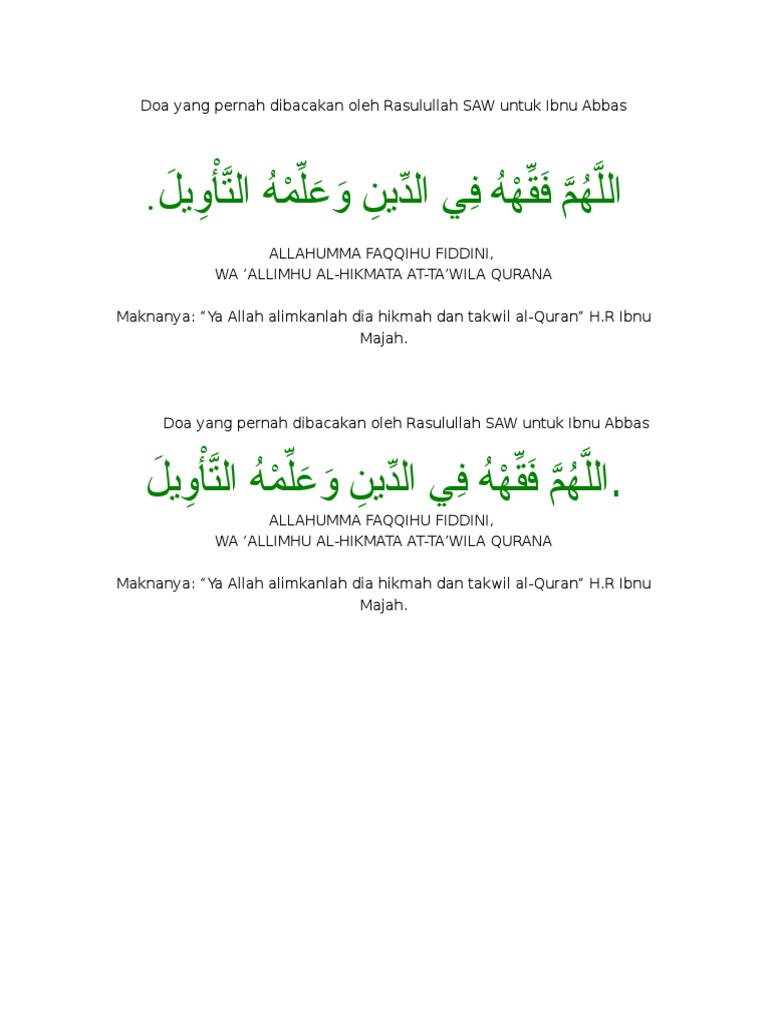 Doa yang pernah dibacakan oleh Rasulullah SAW untuk Ibnu Abbas
اللَّهُمَّ فَقِّهْهُ فِي الدِّينِ وَعَلِّمْهُ التَّأْوِيلَ.
ALLAHUMMA FAQQIHU FIDDINI,
WA ‘ALLIMHU AL-HIKMATA AT-TA’WILA QURANA
Maknanya: “Ya Allah alimkanlah dia hikmah dan takwil al-Quran” H.R Ibnu
Majah.
Doa yang pernah dibacakan oleh Rasulullah SAW untuk Ibnu Abbas
.اللَّهُمَّ فَقِّهْهُ فِي الدِّينِ وَعَلِّمْهُ التَّأْوِيلَ
ALLAHUMMA FAQQIHU FIDDINI,
WA ‘ALLIMHU AL-HIKMATA AT-TA’WILA QURANA
Maknanya: “Ya Allah alimkanlah dia hikmah dan takwil al-Quran” H.R Ibnu
Majah.